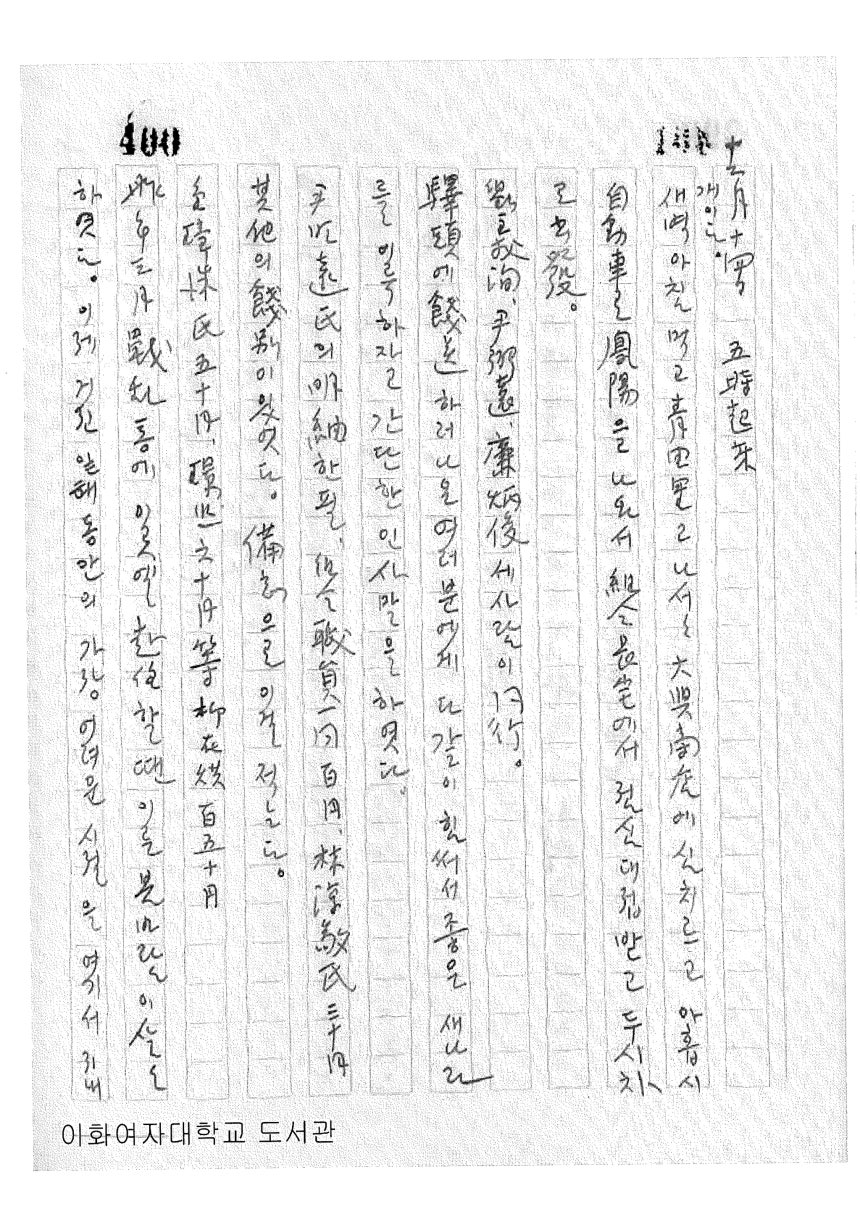 400
十二月十四日 五時起牀
개이다。
새벽아침 먹고 靑田里로 나서는 大興南虎에 실치르고 아홉시
自動車로 鳳陽을 나와서 組合長宅에서 점심대접받고 두시차
로 出發。
劉 洵、尹弼遠、廉炳俊 세사람이 同行。
驛頭에 餞送하러나온 여러분에게 다같이 힘써서 좋은 새나라
를 일륵하자고 간단한 인사말을 하였다。
尹 遠氏의 明紬한필、組合職員一同百円、林淳敬氏三十円
其他의 餞別이 있었다。 備忘으로 이걸 적는다。
氏五十円、 六十円等 柳在 百五十円
昨年三月 戰亂통에 일 할 때 이들 몇사람이
하였다。 이제 거진 일해동안의 가장 어려운 시절을 여기서 지내
이화여자대학교 도서관